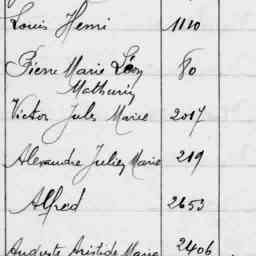 Louis Henri 1110
Pierre Marie Léon 80
Mathurin
Victor Jules Marie 2017
Alexandre Julien Marie 219
Alfred 2653
Auguste Aristide Marie 2406